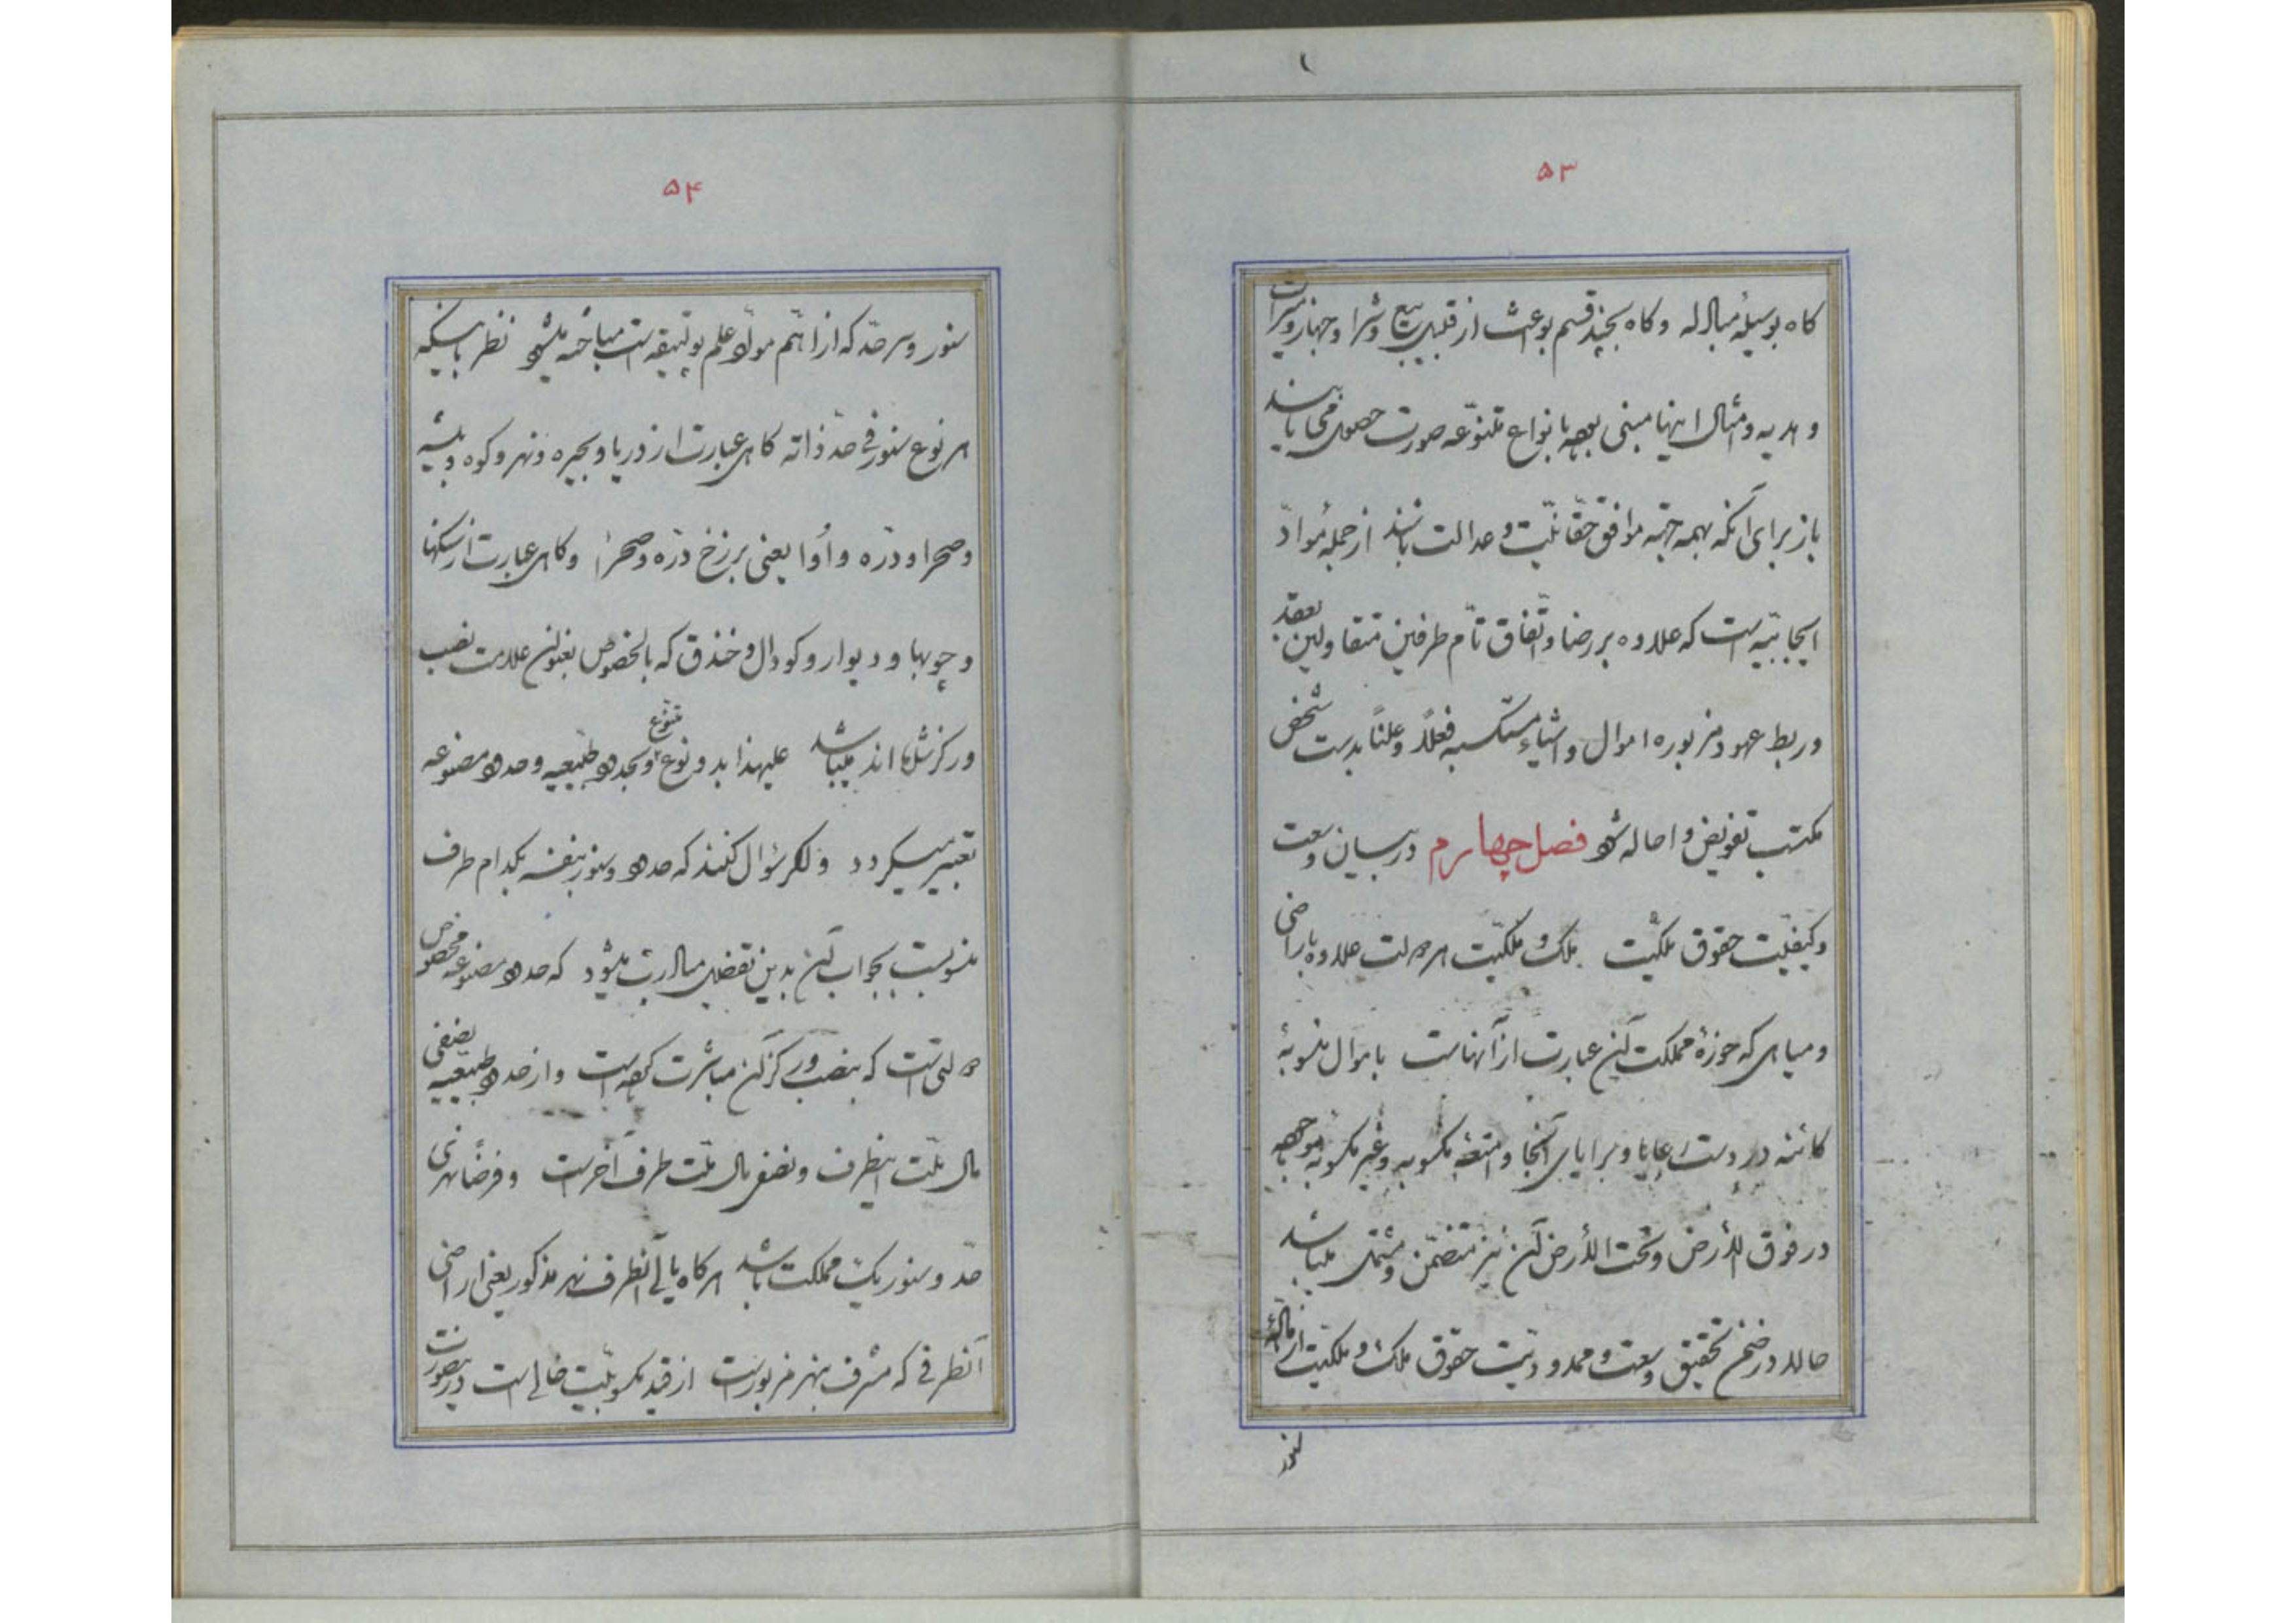 ۵۳
گاه بوسیلهٔ مبادله و گاه بچند قسم بواعث از قبیل بیع و شرا و جهاز و میراث
و هدیه و امثال اینها مبنی بوده بانواع متنوّعه صورت حصول می‌یابند
باز برای آنکه بهمه جهة موافق حقّانیّت و عدالت باشند از جملهٔ موادّ
ایجابیّه است که علاوه بر رضا و اتّفاق تامّ طرفین متقاولین بعقد
و ربط عهود مزبوره اموال و اشیاء مستکسبه فعلاً و علناً بدست شخص
مکتسب تفویض و احاله شود فصل چهارم در بیان وسعت
و کیفیّت حقوق ملکیّت ملک و ملکیّت هر دولت علاوه باراضی
و میاهی که حوزهٔ مملکت آن عبارت از آنهاست باموال منسوبهٔ
کائنه در دست رعایا و برایای آنجا و امتعهٔ مکسوبه و غیر مکسوبه موجوده
در فوق الأرض و تحت الأرض آن نیز متضمّن و مشتمل میباشد
حالا در ضمن تحقیق وسعت و محدودیّت حقوق ملک و ملکیّت از مادّهٔ
سنور
۵۴
سنور و سرحدّ که از اهّم موادّ علم پولتیقه است مباحثه میشود نظر باینکه
هر نوع سنور فی حدّ ذاته گاهی عبارت از دریا و بحیره و نهر و کوه و بیشه
و صحرا و درّه و اوا یعنی برزخ درّه و صحرا و گاهی عبارت از سنگها
و چوبها و دیوار و گودال و خندق که بالخصوص بعنوان علامت نصب
و رکز شده‌اند میباشد علیهذا بدو نوع متنوّع و بحدود طبیعیه و حدود مصنوعه
تعبیر میگردد و اگر سؤال کنند که حدود و سنور بنفسه بکدام طرف
منسوبست بجواب آن بدین تفصیل مبادرت میشود که حدود مصنوعه مخصوص
دولتی است که بنصب و رکز آن مباشرت کرده است و از حدود طبیعیه نصفی
مال ملّت اینطرف و نصفی مال ملّت طرف آخرست و فرضاً نهری
حدّ و سنور یک مملکت باشد هرگاه یالی آنطرف نهر مذکور یعنی اراضی
آنطرفی که مشرف بنهر مزبورست از قید مکسوبیّت خالی است در اینصورت